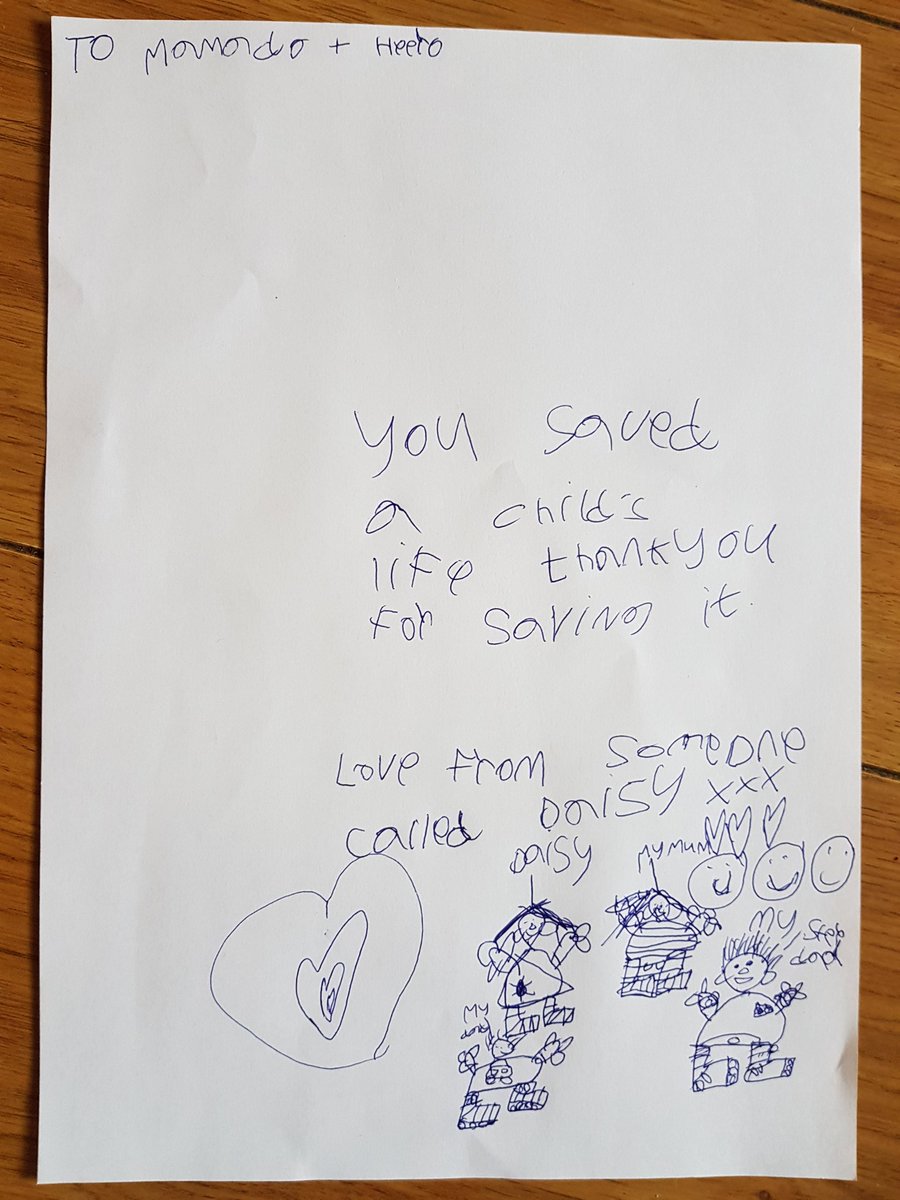 TO Mamado + Heero
you saved
a child's
life thankyou
for saving it.
Love from someone
called DaiSY xxx
DaiSY
My MuM
My Step
dad
My
dad